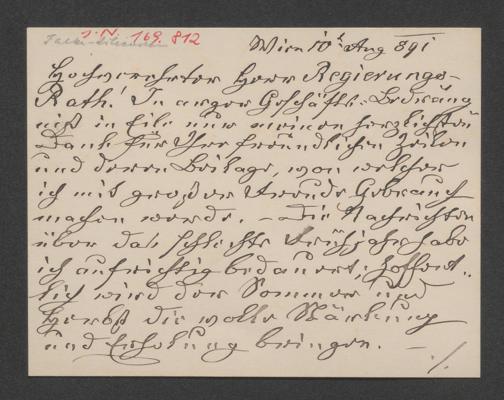 I.N. 169.812
Wien 10t Aug 891
Hochverehrter Herr Regierungs-
Rath! In arger Geschäfts-Bedräng
niß in Eile nur meinen herzlichsten
Dank für Ihre freundlichen Zeilen
und deren Beilage, von welcher
ich mit großer Freude Gebrauch
machen werde. – Die Nachrichten
über das schlechte Frühjahr habe
ich aufrichtig bedauert; hoffent-
lich wird der Sommer und
Herbst die volle Stärkung
und Erholung bringen. –